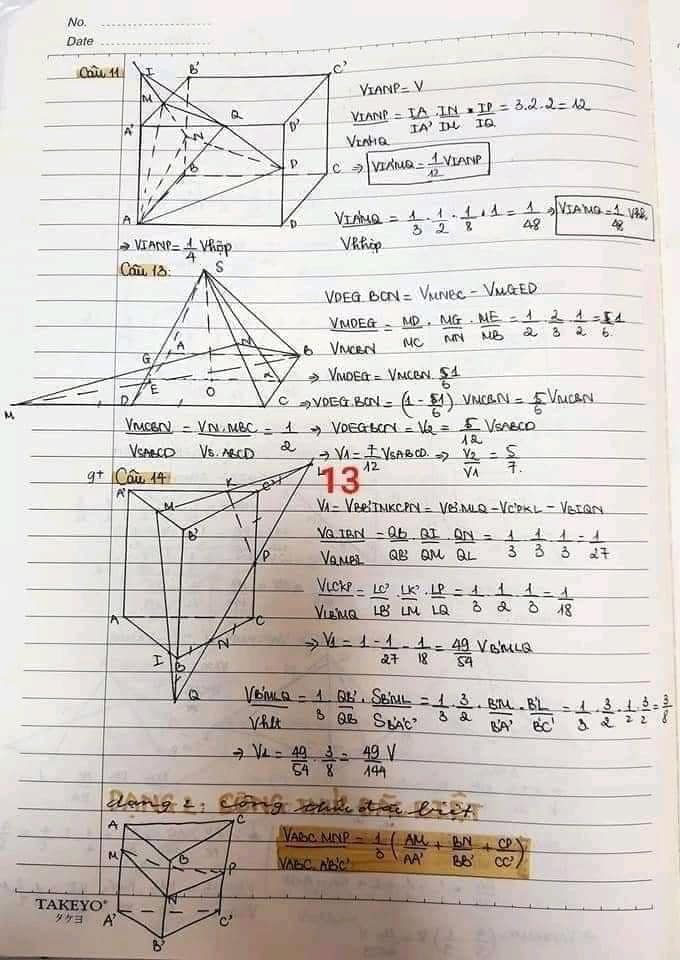 No.
Date
Câu 11
I B' C'
M Q
A' N D'
P
B C
A D
VIANP = V
VIANP = IA/IA' . IN/IM * IP/IQ = 3.2.2 = 12
VIA'MQ
⇒ VIA'MQ = 1/12 VIANP
VIA'MQ = 1/3 . 1/2 . 1/8 . 1 = 1/48 ⇒ VIA'MQ = 1/48 Vhộp
Vkhộp
⇒ VIANP = 1/4 Vhộp
Câu 13:
S
G A N B
M D E O C
VDEG.BCN = VMNBC - VMGED
VMDEG = MD/MC . MG/MN . ME/MB = 1/2 . 2/3 . 1/2 = 1/6
VMCBN
⇒ VMDEG = VMCBN . 1/6
⇒ VDEG.BCN = (1 - 1/6) VMCBN = 5/6 VMCBN
VMCBN/VSABCD = VN.MBC/VS.ABCD = 1/2 ⇒ VDEGBCN = V2 = 5/12 VSABCD
⇒ V1 = 7/12 VSABCD ⇒ V2/V1 = 5/7.
9+ Câu 14
13
A' M K C' L
B'
P
A C
I B N
Q
V1 = VBB'IMKCPN = VB'.MLQ - VC'PKL - VBIQN
VQIBN/VQMB'L = QB/QB' . QI/QM . QN/QL = 1/3 . 1/3 . 1/3 = 1/27
VLC'KP/VLB'MQ = LC'/LB' . LK/LM . LP/LQ = 1/3 . 1/2 . 1/3 = 1/18
⇒ V1 = 1 - 1/27 - 1/18 = 49/54 VB'MLQ
VB'MLQ/Vhlt = 1/3 . QB'/QB . SB'ML/SB'A'C' = 1/3 . 3/2 . B'M/B'A' . B'L/B'C' = 1/3 . 3/2 . 1/2 . 3/2 = 3/8
⇒ V1 = 49/54 . 3/8 = 49/144 V
dạng 2: công thức đặc biệt
A C
M B P
N
A' C'
B'
VABC.MNP/VABC.A'B'C' = 1/3 (AM/AA' + BN/BB' + CP/CC')
TAKEYO
タケヨ